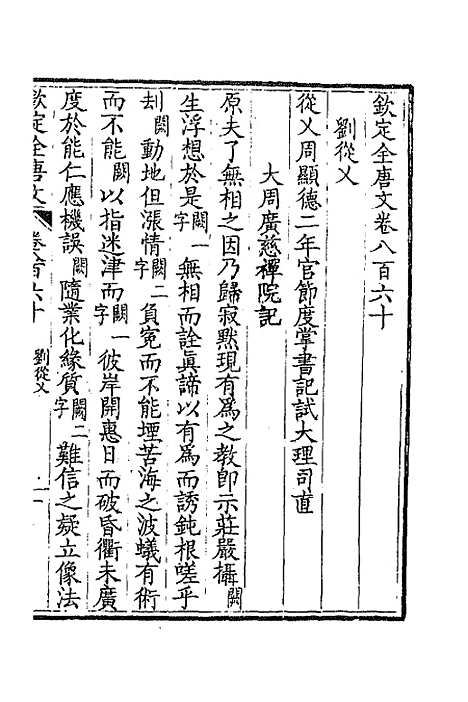 欽定全唐文卷八百六十
劉從乂
從乂周顯德二年官節度掌書記試大理司直
大周廣慈禪院記
原夫了無相之因乃歸寂默現有爲之教卽示莊嚴攝闕
生浮想於是闕一字無相而詮眞諦以有爲而誘鈍根嗟乎
刦闕動地但漲情闕二字負寃而不能堙苦海之波蟻有術
而不能闕以指迷津而闕一字彼岸開惠日而破昏衢未廣
度於能仁應機誤闕隨業化緣質闕二字難信之疑立像法
欽定全唐文 卷八百六十 劉從乂 一